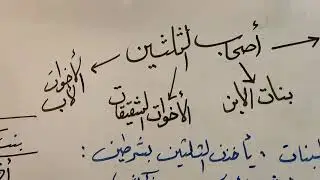 أصحاب الثلثين
بنات الابن
الأخوات الشقيقات
الأخوات لأب
البنات : يأخذن الثلثين بشرطين :